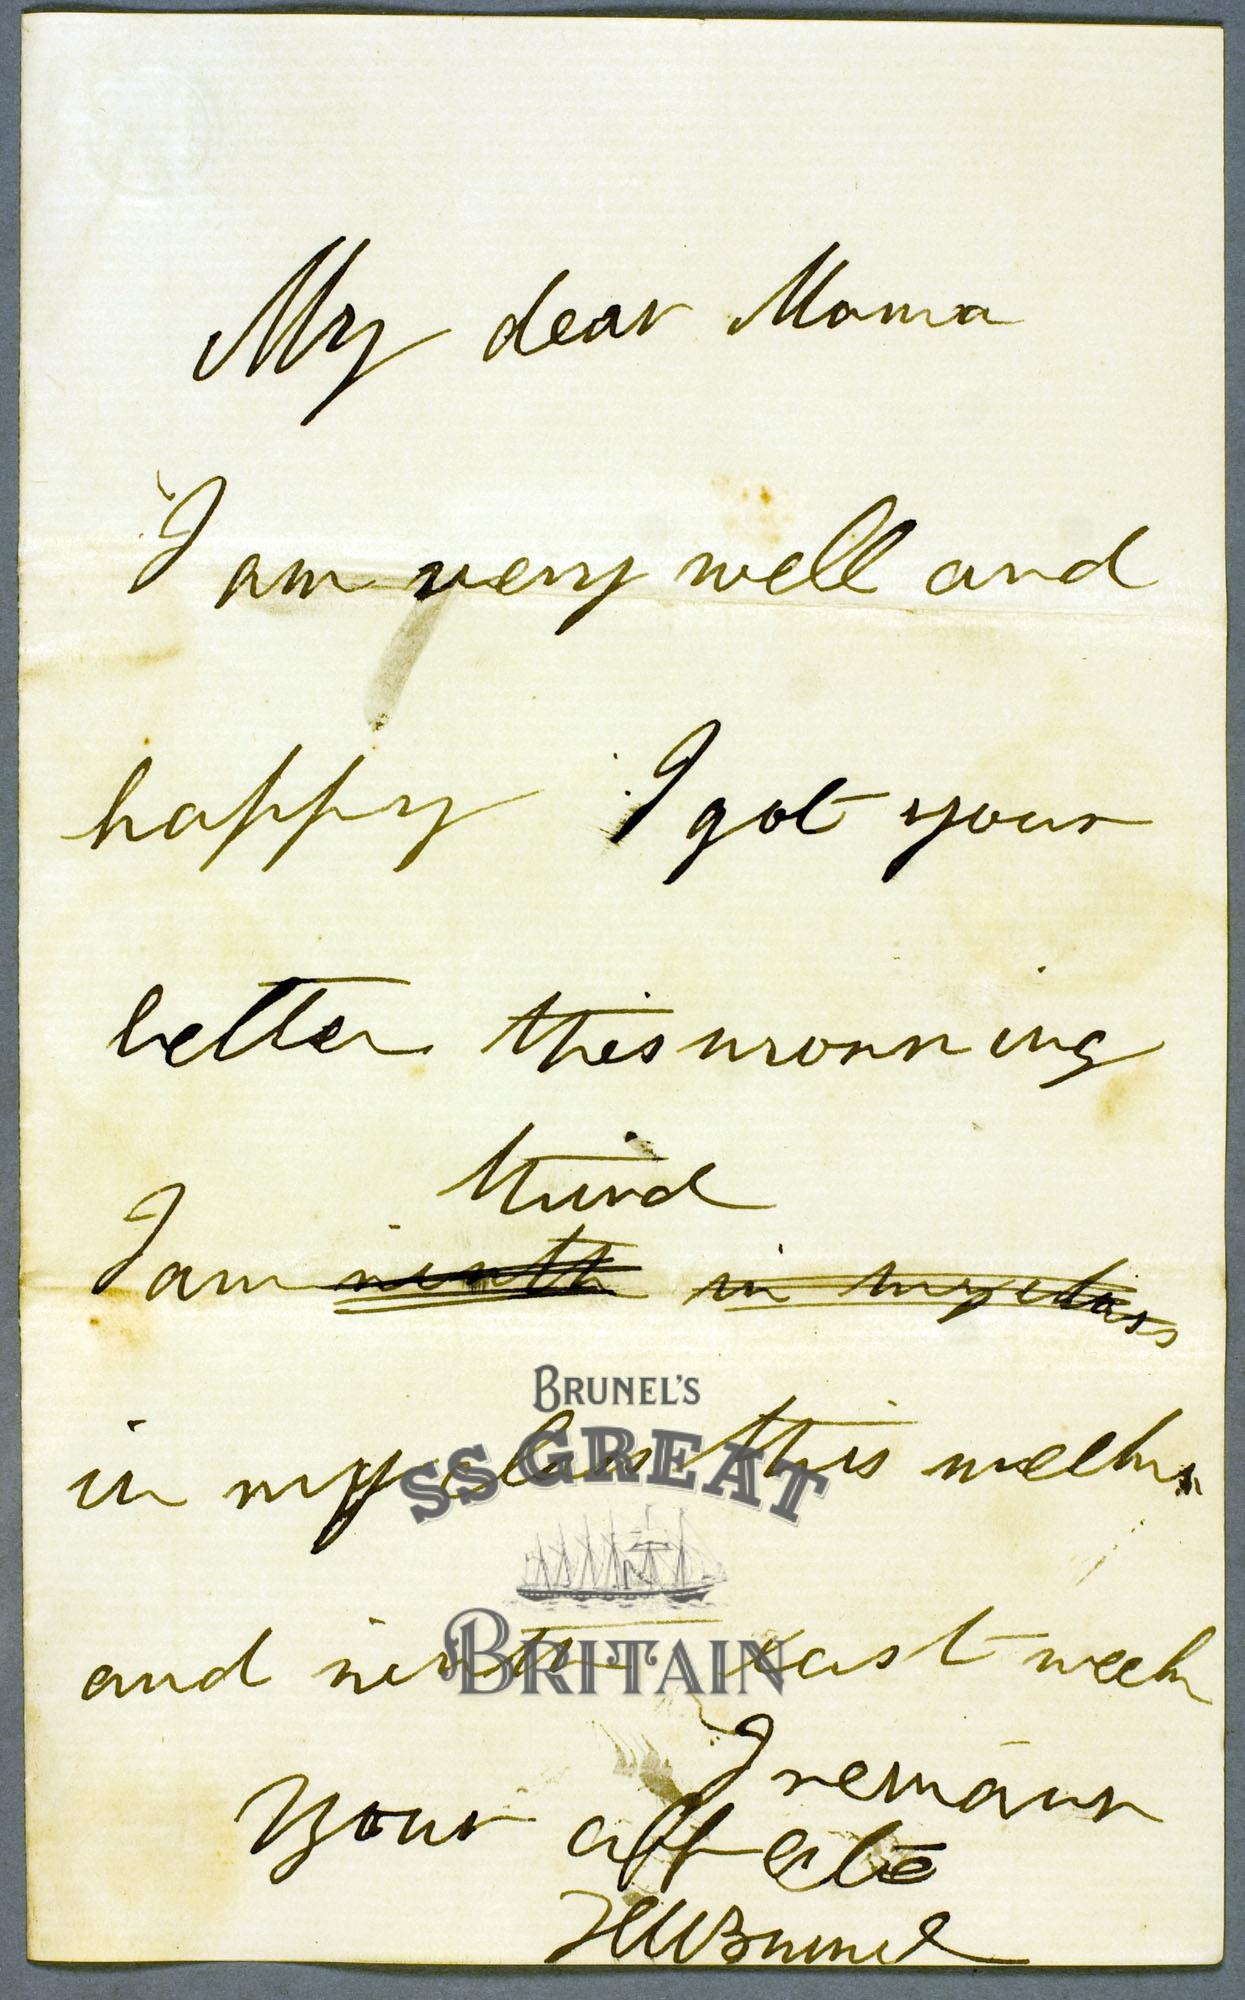 My dear Mama
I am very well and
happy I got your
letter this morning
third
I am ninth in my class
in my class this week
and ninth last week
I remain
Your affecte
HMBrunel
BRUNEL'S
SS GREAT
BRITAIN